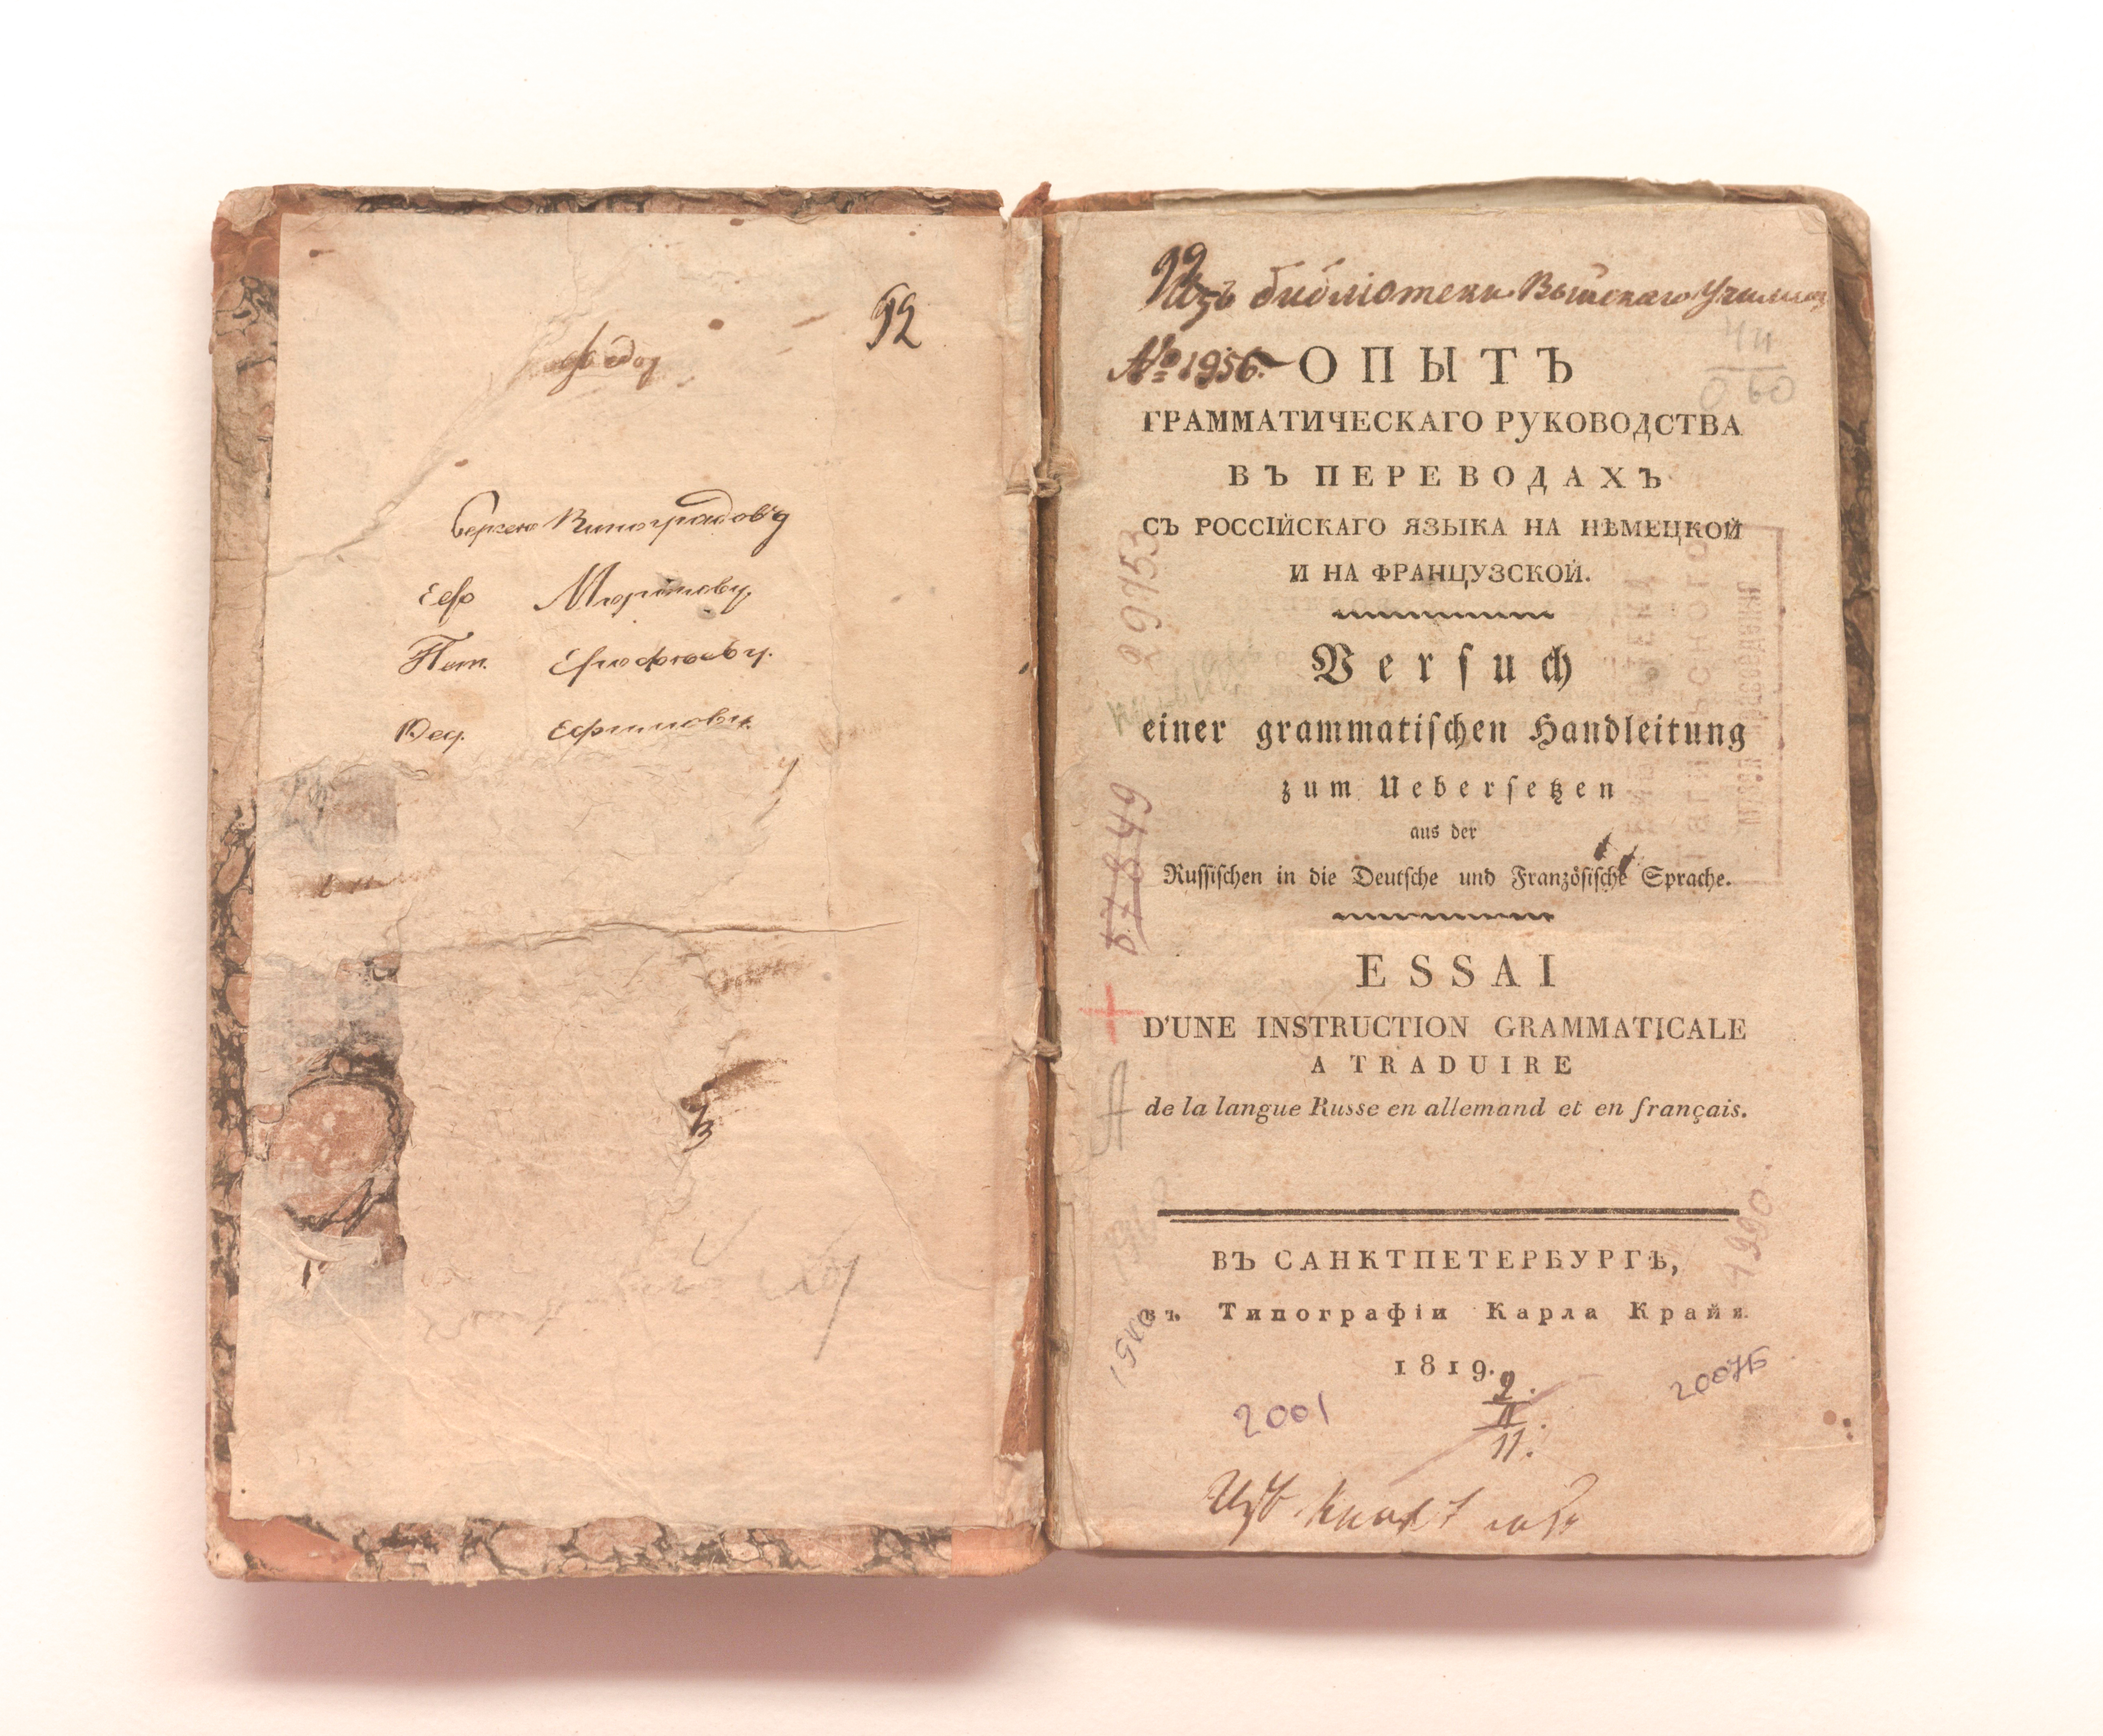 92
Сергею Виноградову
Еф Мюртову
Пет. Ерофееву.
Фед. Ефимову.
92
Изъ библіотеки Выйскаго Училища
№ 1956.
ОПЫТЪ
ГРАММАТИЧЕСКАГО РУКОВОДСТВА
ВЪ ПЕРЕВОДАХЪ
СЪ РОССІЙСКАГО ЯЗЫКА НА НѢМЕЦКОЙ
И НА ФРАНЦУЗСКОЙ.
Versuch
einer grammatischen Handleitung
zum Uebersetzen
aus der
Russischen in die Deutsche und Französische Sprache.
ESSAI
D'UNE INSTRUCTION GRAMMATICALE
A TRADUIRE
de la langue Russe en allemand et en français.
ВЪ САНКТПЕТЕРБУРГѢ,
въ Типографіи Карла Крайя.
1819.
29753
57849
A
1990
2
II
11.
2001
2007Б
Изъ книгъ